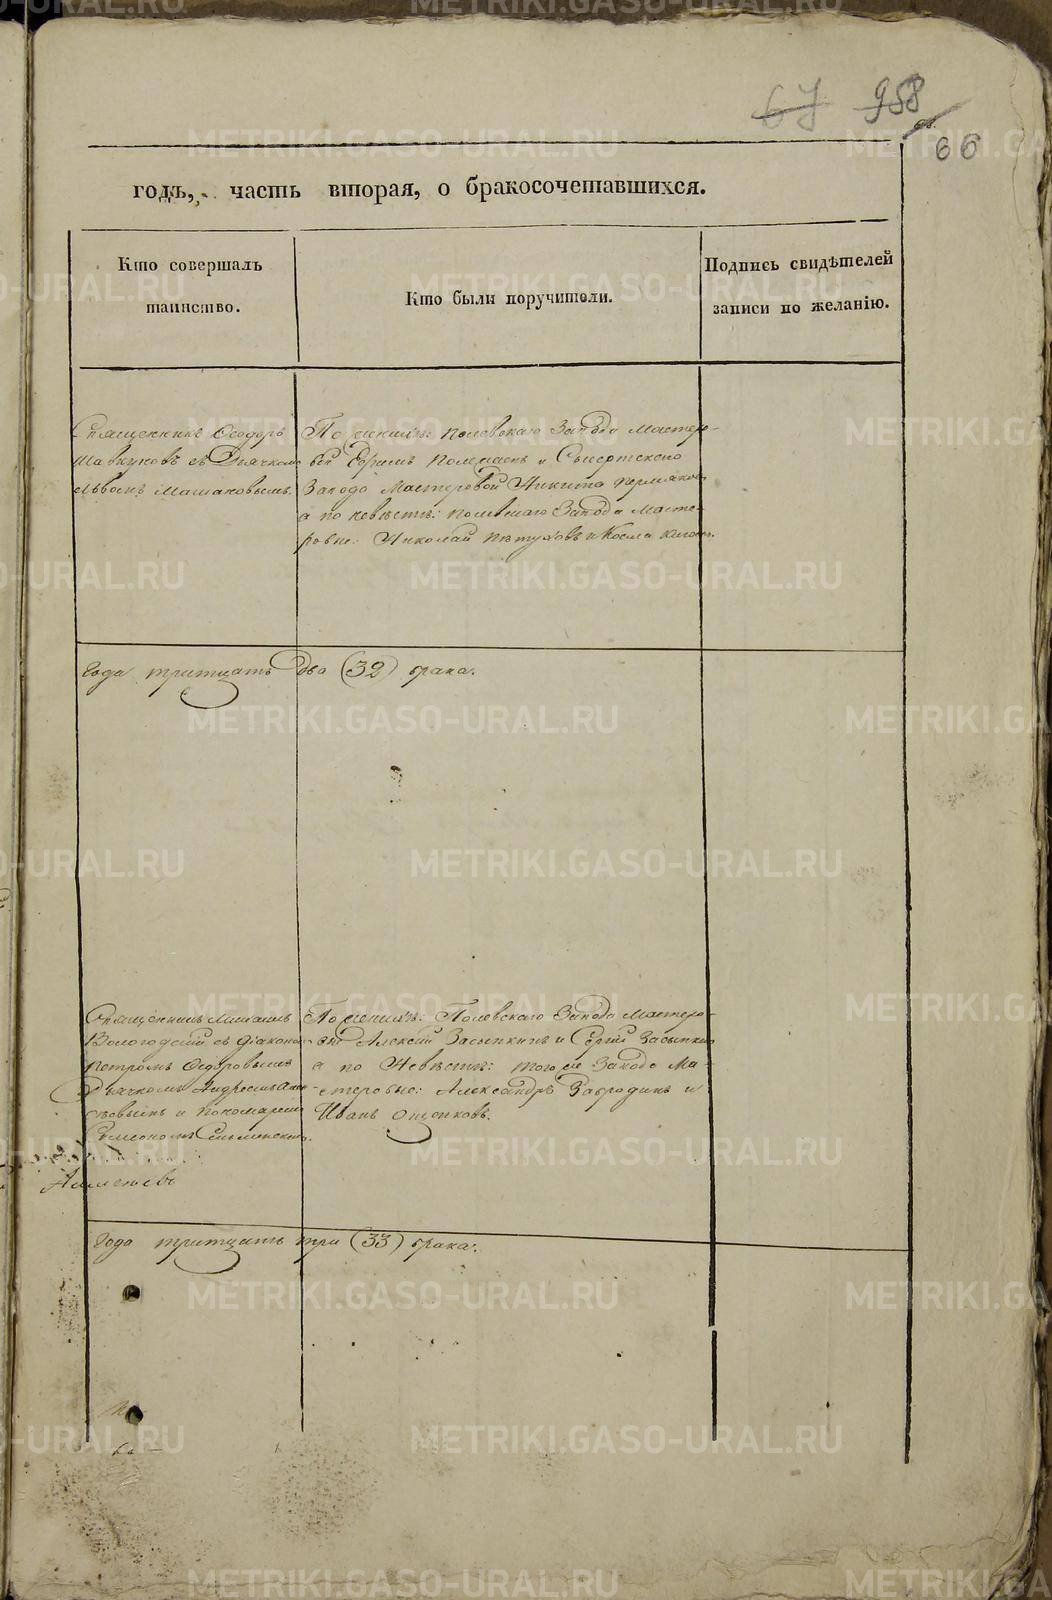 67 958
66
годъ, часть вторая, о бракосочетавшихся.
Кто совершалъ
таинство.
Кто были поручители.
Подпись свидѣтелей
записи по желанію.
Священникъ Ѳеодоръ
съ Дьячкомъ
Львомъ
По женихѣ: Полевскаго Завода Мастер-
вой Ефимъ и Сысертскаго
Завода Мастеровой Никита
а по невѣстѣ: Полевскаго Завода Масте-
ровые: Николай Пѣтуховъ и Косма
года тритцать два (32) брака.
Священникъ Михаилъ
Вологодскій съ діакономъ
Петромъ Ѳедоровымъ
Дьячкомъ Андреемъ
и пономаремъ
Симеономъ
По женихѣ: Полевскаго Завода Мастеро-
вые Алексѣй Засыпкинъ и Сергій Засыпкинъ
а по Невѣстѣ: того же Завода Ма-
стеровые: Александръ Завродинъ и
Иванъ Ощепковъ.
года тритцать три (33) брака.
METRIKI.GASO-URAL.RU